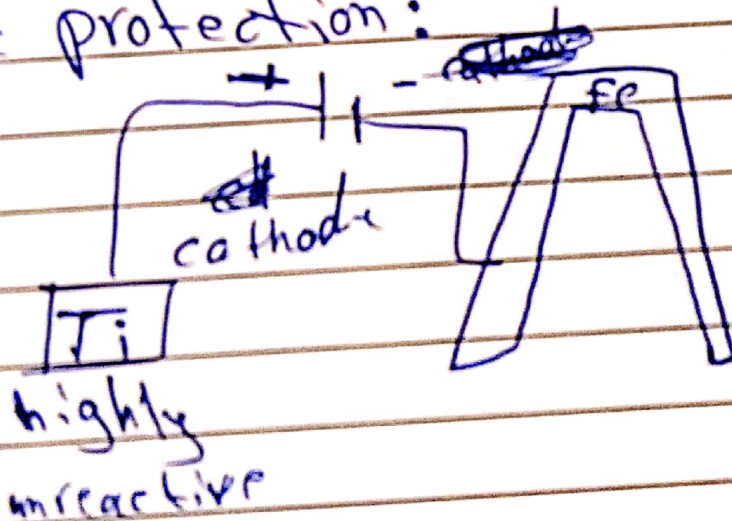 protection:
+ -
Fe
cathode
Ti
highly
unreactive